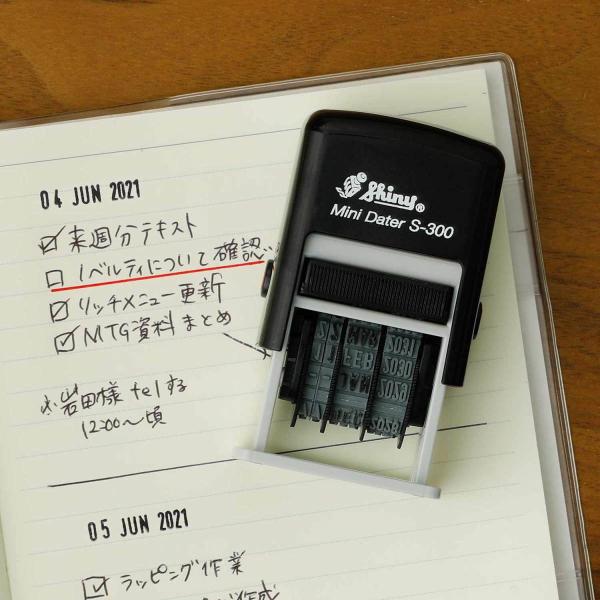 04 JUN 2021
☑ 来週分テキスト
☐ ノベルティについて確認
☑ リッチメニュー更新
☑ MTG資料まとめ
岩田様 telする
12:00〜頃
05 JUN 2021
☑ ラッピング作業
作成
Shiny®
Mini Dater S-300
FEB
JAN
2031
2030
2029
2028